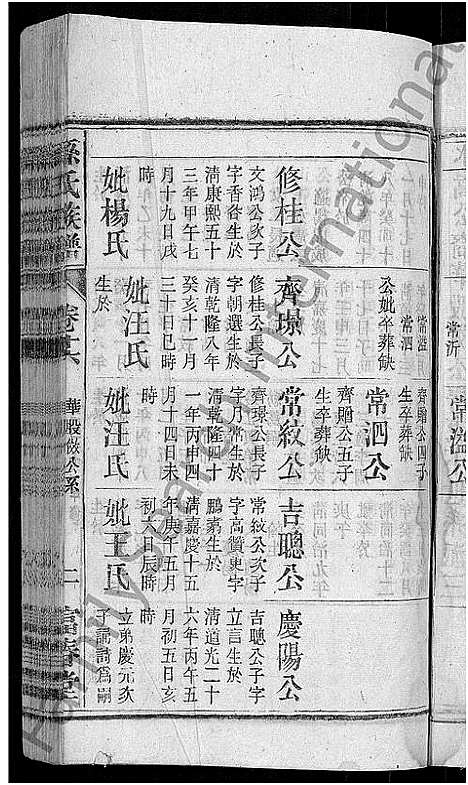 常溢
常泗
公妣卒葬缺
齊贈公四子
生卒葬缺
常泗公
齊贈公五子
生卒葬缺
修桂公
文鴻公次子
字香谷生於
清康熙五十
三年甲午七
月十九日戌
時
妣楊氏
齊璟公
修桂公長子
字朝選生於
清乾隆八年
癸亥十一月
三十日巳時
妣汪氏
生於
常紋公
齊璟公長子
字月常生於
清乾隆四十
一年丙申四
月十四日未
時
妣汪氏
吉聰公
常紋公次子
字高贊更字
鵬翥生於
清嘉慶十五
年庚午五月
初六日辰時
妣王氏
慶陽公
吉聰公子字
立言生於
清道光二十
六年丙午五
月初五日亥
時
立弟慶元次
子詩為嗣
孫氏族譜
華股做公系
二
富春堂
常沂
常溢公
FamilySearch International